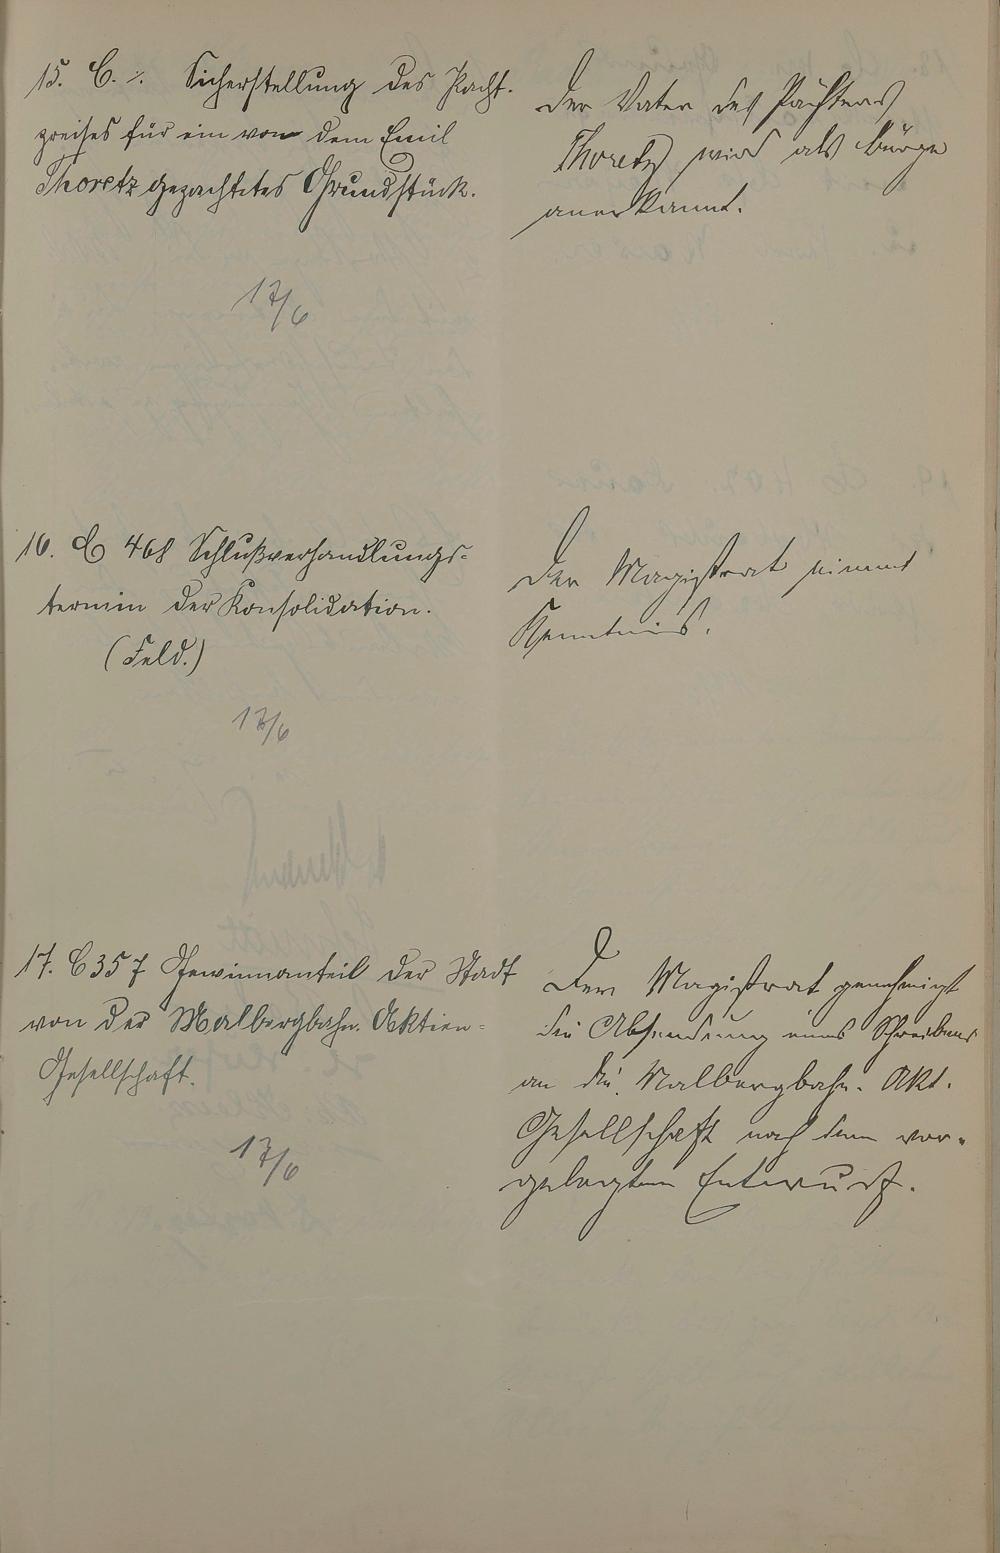 15. C. ./. Sicherstellung des Pacht-
preises für ein von dem Emil
Thoretz gepachtetes Grundstück.
17/6
Der Vater des Pächters
Thoretz wird als Bürge
anerkannt.
16. C 468 Schlußverhandlungs-
termin der Konsolidation.
(Feld.)
17/6
Der Magistrat nimmt
Kenntnis.
17. C 357 Gewinnanteil der Stadt
von der Malbergbahn-Aktien-
Gesellschaft.
17/6
Der Magistrat genehmigt
die Absendung eines Schreibens
an die Malbergbahn-Akt.
Gesellschaft nach dem vor-
gelegten Entwurf.